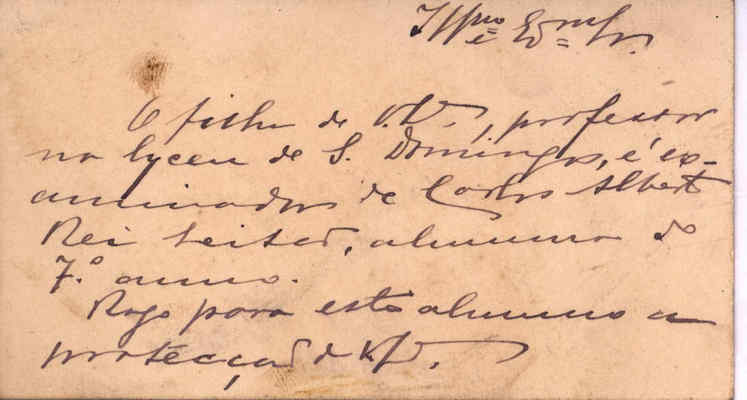 Illmo e Exmo Sr.
O filho de V. Ex.ª, professor
no lyceu de S. Domingos, é ex-
aminador de Carlos Albert
Rei Leitão, alumno do
7.º anno.
Rogo para este alumno a
protecção de V. Ex.ª